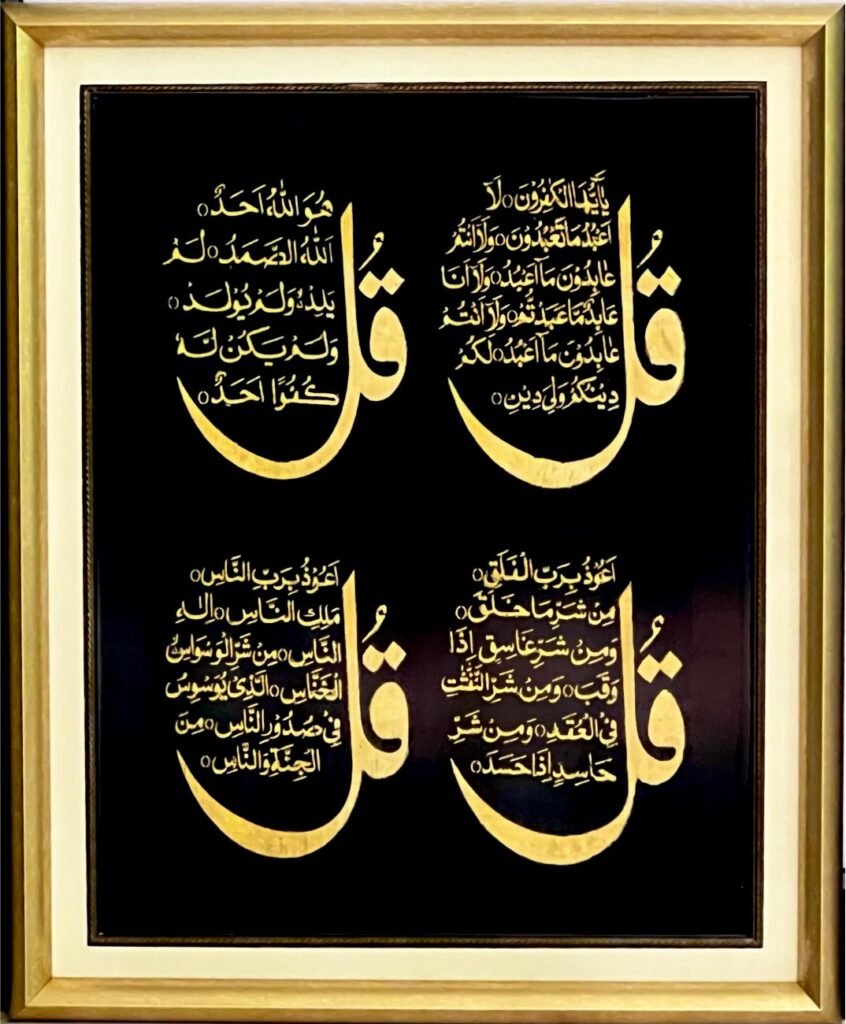 قُلْ
يٰٓاَيُّهَا الْكٰفِرُوْنَ○ لَآ
اَعْبُدُ مَا تَعْبُدُوْنَ○ وَلَآ اَنْتُمْ
عٰبِدُوْنَ مَآ اَعْبُدُ○ وَلَآ اَنَا
عَابِدٌ مَّا عَبَدْتُّمْ○ وَلَآ اَنْتُمْ
عٰبِدُوْنَ مَآ اَعْبُدُ○ لَكُمْ
دِيْنُكُمْ وَلِيَ دِيْنِ○
قُلْ
هُوَ اللّٰهُ اَحَدٌ○
اَللّٰهُ الصَّمَدُ○ لَمْ
يَلِدْ وَلَمْ يُوْلَدْ○
وَلَمْ يَكُنْ لَّهٗ
كُفُوًا اَحَدٌ○
قُلْ
اَعُوْذُ بِرَبِّ الْفَلَقِ○
مِنْ شَرِّ مَا خَلَقَ○
وَمِنْ شَرِّ غَاسِقٍ اِذَا
وَقَبَ○ وَمِنْ شَرِّ النَّفّٰثٰتِ
فِي الْعُقَدِ○ وَمِنْ شَرِّ
حَاسِدٍ اِذَا حَسَدَ○
قُلْ
اَعُوْذُ بِرَبِّ النَّاسِ○
مَلِكِ النَّاسِ○ اِلٰهِ
النَّاسِ○ مِنْ شَرِّ الْوَسْوَاسِ
الْخَنَّاسِ○ الَّذِيْ يُوَسْوِسُ
فِيْ صُدُوْرِ النَّاسِ○ مِنَ
الْجِنَّةِ وَالنَّاسِ○